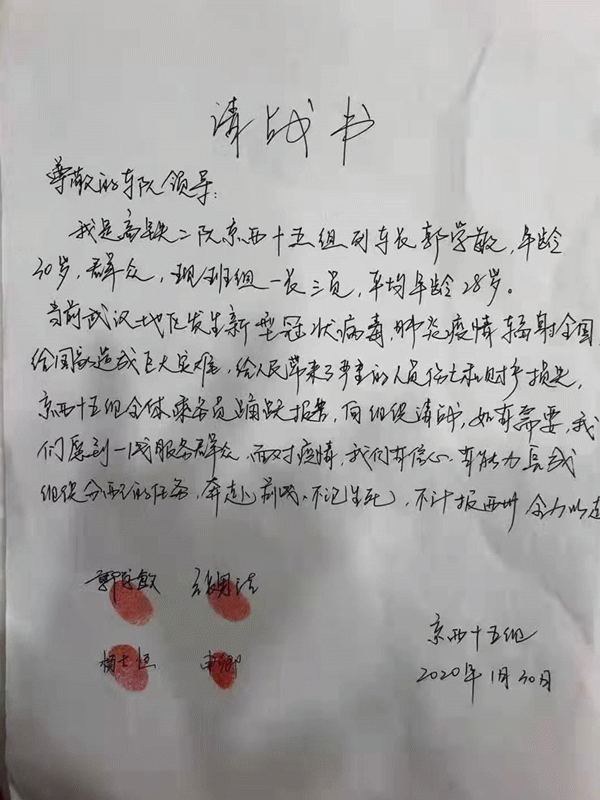 请战书
尊敬的车队领导:
我是高铁二队京西十五组列车长郭学敏,年龄
30岁,群众,现班组一长三员,平均年龄28岁。
当前武汉地区发生新型冠状病毒,肺炎疫情辐射全国
给国家造成巨大灾难,给人民带来了严重的人员伤亡和财产损失,
京西十五组全体乘务员踊跃报名,向组织请战,如有需要,我
们愿到一线服务群众,面对疫情,我们有信心、有能力完成
组织分配的任务,奔赴前线、不记生死,不计报酬 全力以赴
郭学敏
杨士恒 申卿
京西十五组
2020年1月30日